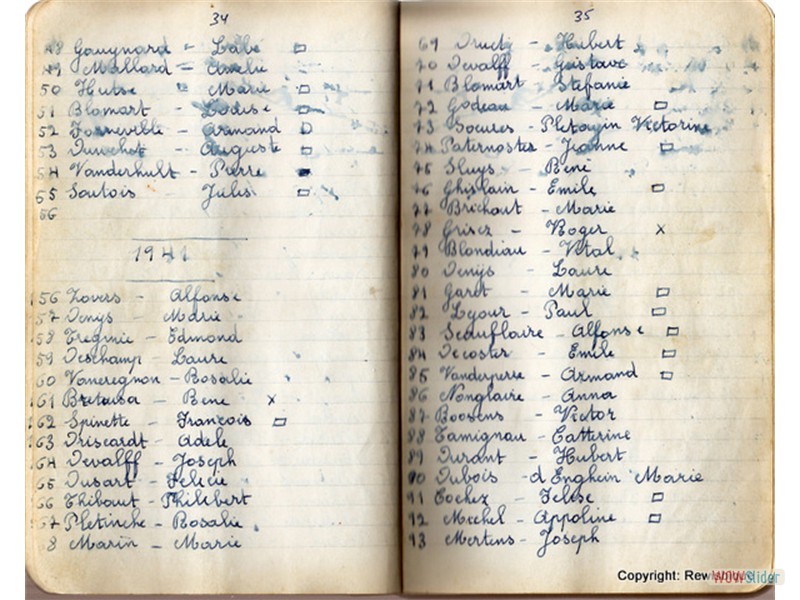 34
48 Gougnard - Labé
49 Mallard - Amélie
50 Hulse - Marie
51 Blomart - Lodise
52 Forneville - Armand
53 Duuchet - Auguste
54 Vanderhult - Pierre
55 Soutois - Jules
56
1941
56 Lovers - Alfonse
57 Denys - Marie
58 Tregmie - Edmond
59 Deschamp - Laure
60 Vaneregnon - Rosalie
61 - Réné x
62 Spinette - François
63 Driscardt - Adèle
64 Devalff - Joseph
65 Dusart - Félicie
66 Thibaut - Philibert
67 Pletinche - Rosalie
8 Marin - Marie
35
69 Druct - Hubert
70 Devalff - Gustave
71 Blomart - Stefanie
72 Godeau - Marie
73 - Victorine
74 Paternoster - Jeanne
75 Sluys - Réné
76 Ghislain - Emile
77 Brichout - Marie
78 Grisez - Roger x
79 Blondiau - Vital
80 Denys - Laure
81 Garet - Marie
82 Legour - Paul
83 Scauflaire - Alfonse
84 Decoster - Emile
85 Vanderperre - Armand
86 Nonglaire - Anna
87 Boosens - Victor
88 Tamignau - Catterine
89 Durant - Hubert
90 Dubois - d Enghein Marie
91 Cochez -
92 Michel - Appoline
93 Mertens - Joseph
Copyright: Rew
WOWSlider